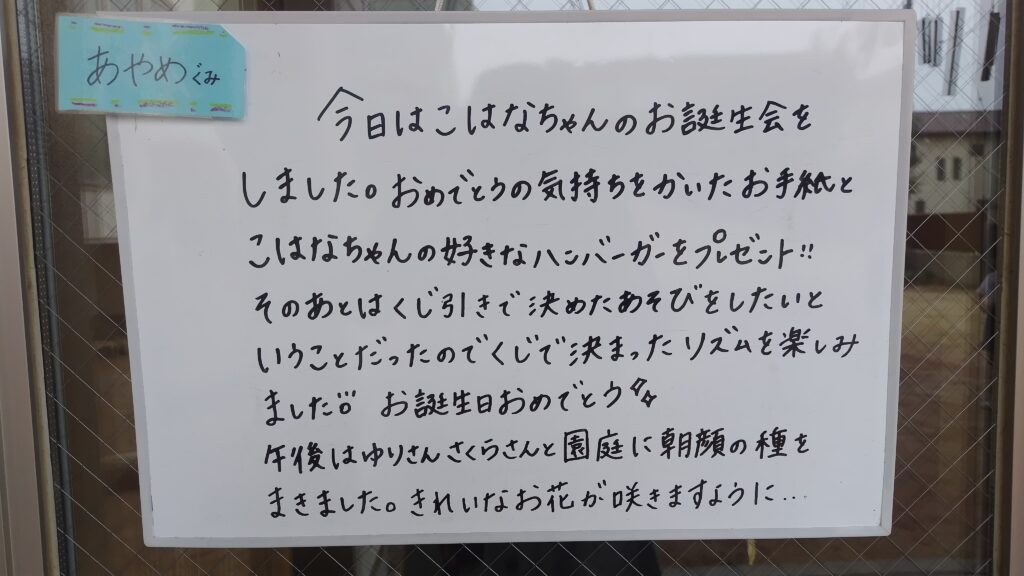 あやめぐみ
今日はこはなちゃんのお誕生会を
しました。おめでとうの気持ちをかいたお手紙と
こはなちゃんの好きなハンバーガーをプレゼント!!
そのあとはくじ引きで決めたあそびをしたいと
いうことだったのでくじで決まったリズムを楽しみ
ました!! お誕生日おめでとう
午後はゆりさんさくらさんと園庭に朝顔の種を
まきました。きれいなお花が咲きますように...